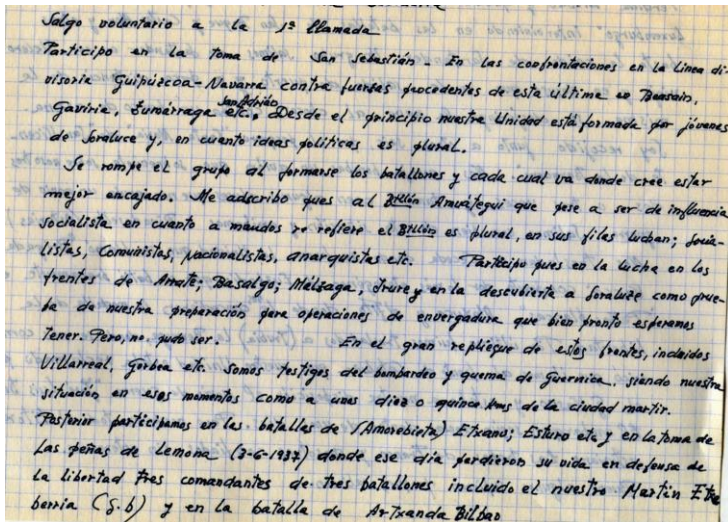 Salgo voluntario a la 1ª llamada
Participo en la toma de San Sebastián - En las confrontaciones en la linea di-
visoria Guipúzcoa-Navarra contra fuerzas procedentes de esta última en Beasain,
Gaviria, Zumárraga San Adrián etc, Desde el principio nuestra Unidad está formada por jóvenes
de Soraluce y, en cuanto ideas politicas es plural.
Se rompe el grupo al formarse los batallones y cada cual va donde cree estar
mejor encajado. Me adscribo pues al Btllón Amuátegui que pese a ser de influencia
socialista en cuanto a mandos se refiere el Btllón es plural, en sus filas luchan; Socia-
listas, Comunistas, nacionalistas, anarquistas etc. Participo pues en la lucha en los
frentes de Arrate; Basalgo; Mélzaga, Irure y en la descubierta a Soraluze como prue-
ba de nuestra preparación para operaciones de envergadura que bien pronto esperamos
tener. Pero, no, pudo ser. En el gran repliegue de estos frentes, incluidos
Villarreal, Gorbea etc. Somos testigos del bombardeo y quema de Guernica, siendo nuestra
situación en esos momentos como a unos diez o quince kms de la ciudad martir.
Posterior participamos en las batallas de (Amorebieta) Etxano; Esturo etc y en la toma de
Las peñas de Lemona (3-6-1937) donde ese dia perdieron su vida en defensa de
la libertad tres comandantes de tres batallones incluido el nuestro Martin Etxe
berria (G.b) y en la batalla de Artxanda Bilbao